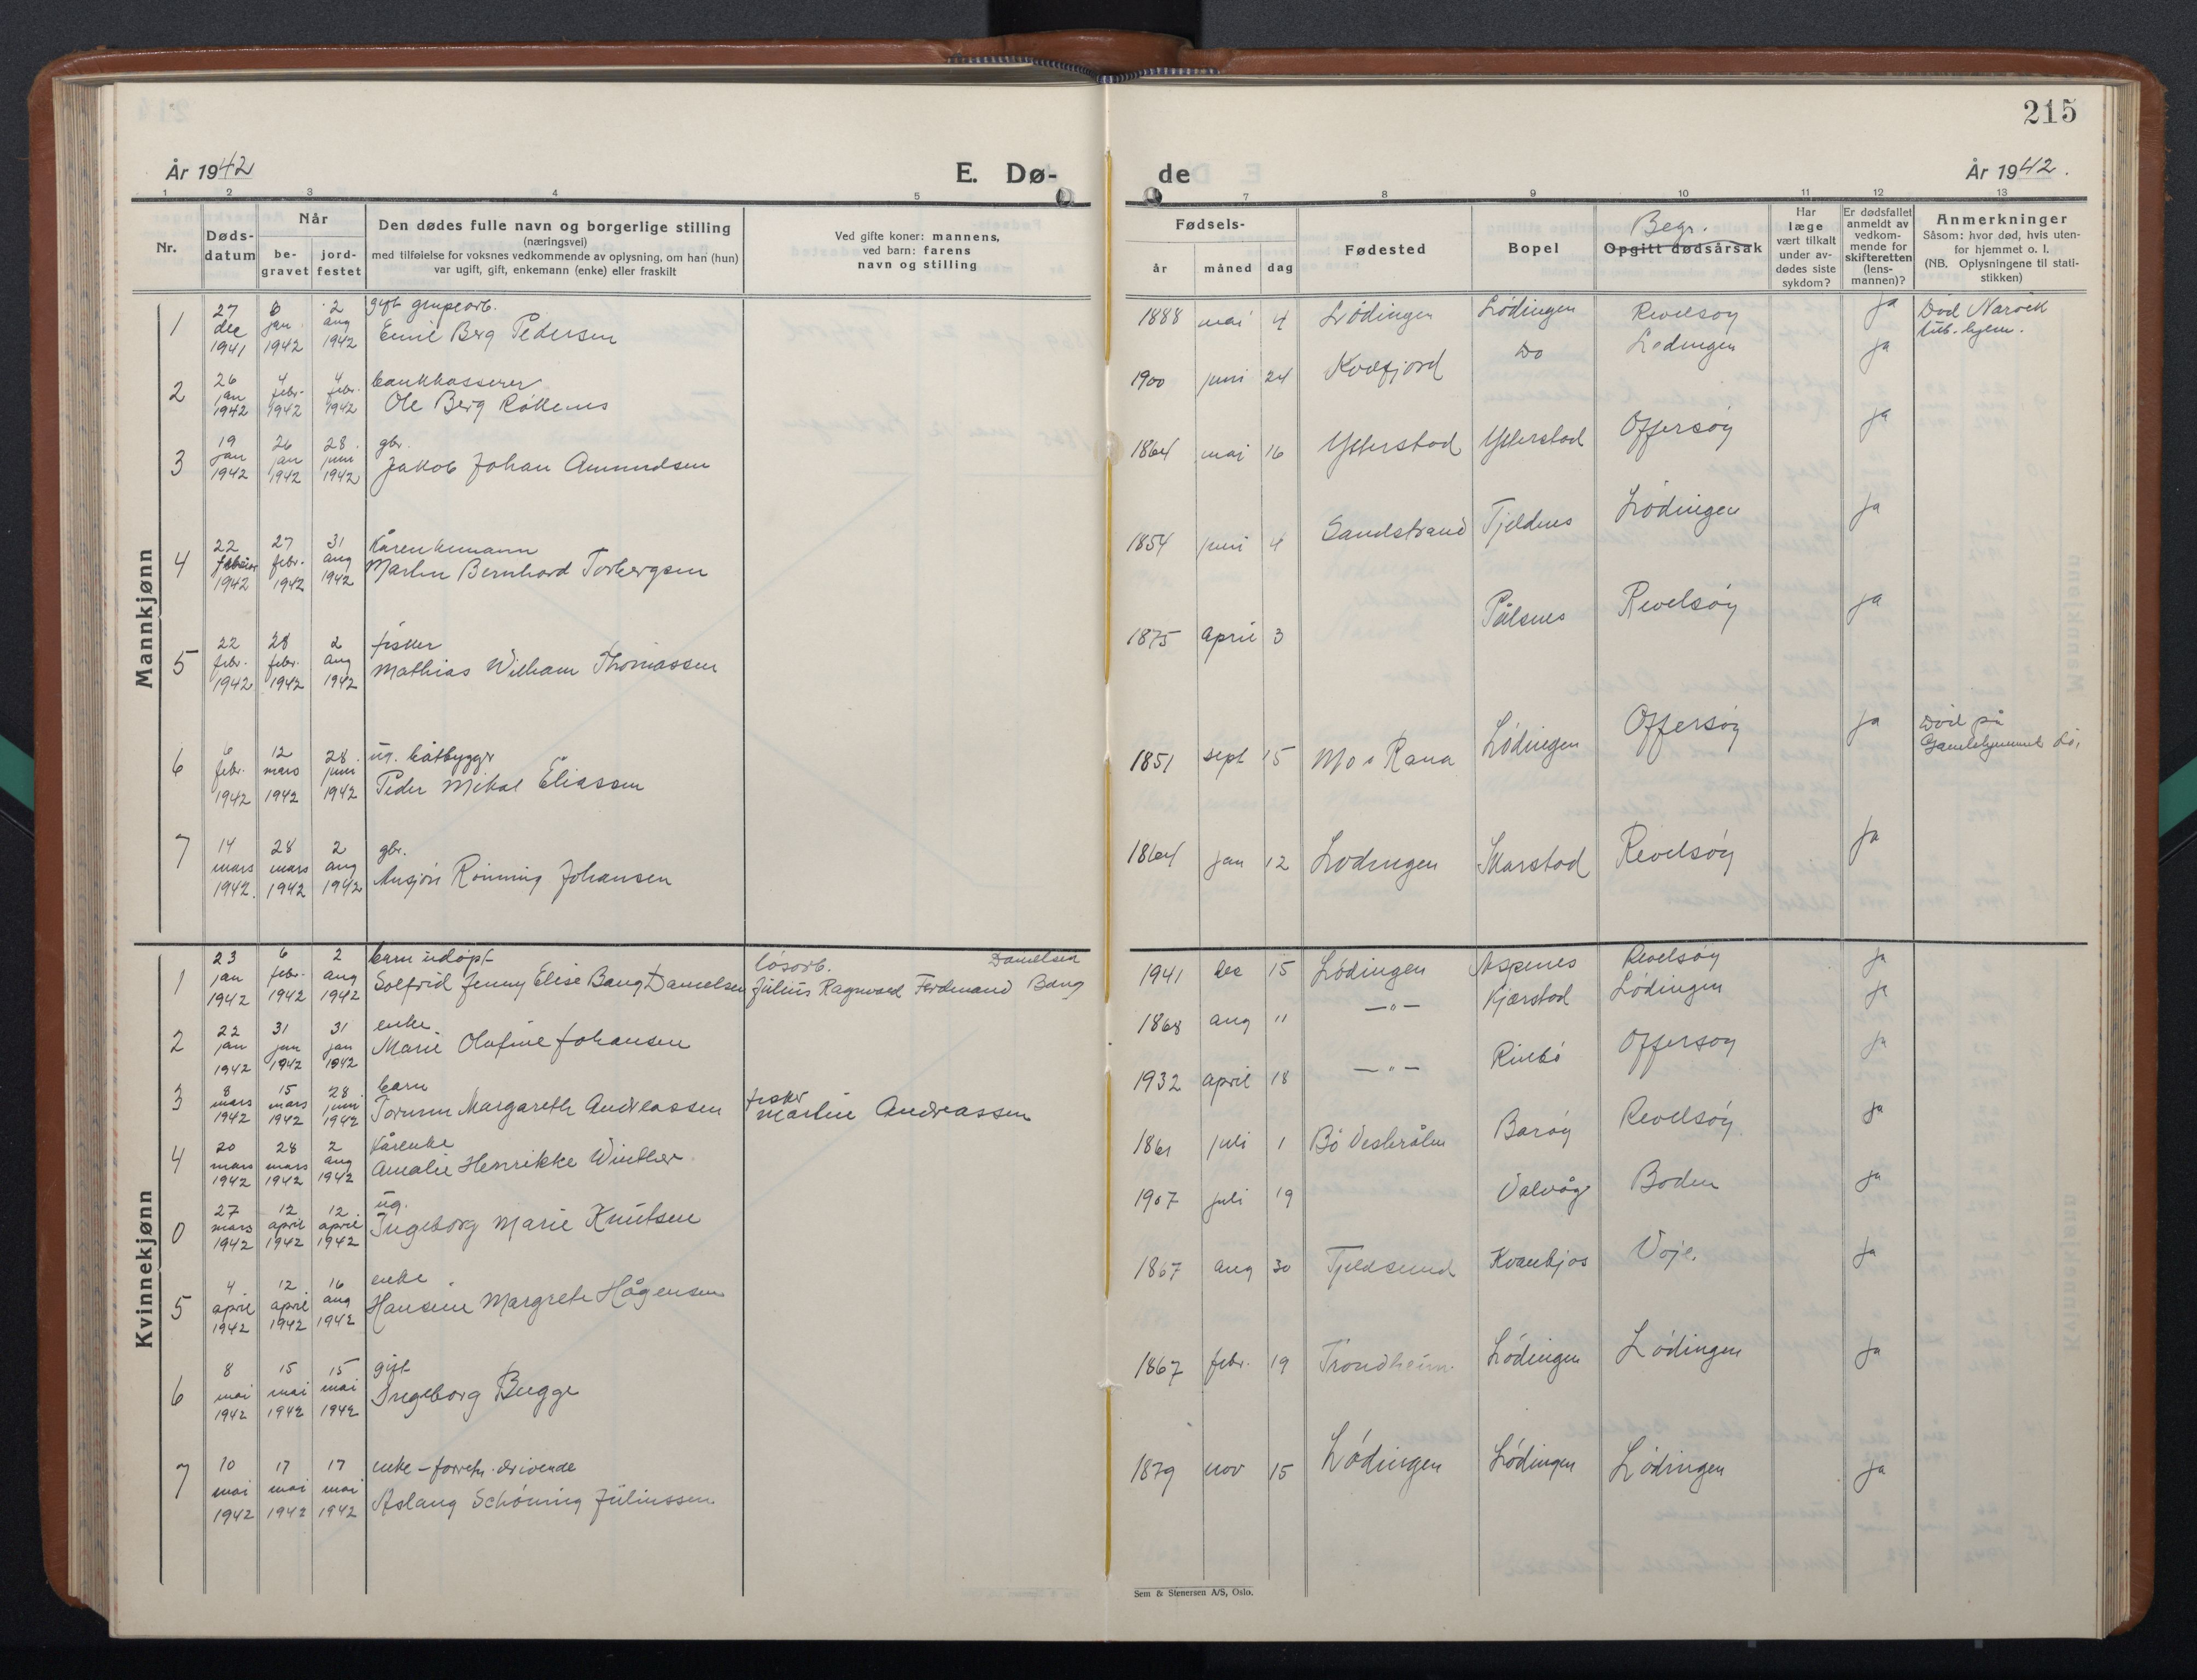 215
År 1942
E. Dø-
de
År 1942.
1 2 3 4 5
7 8 9 10 11 12 13
Nr.
Døds-
datum
Når
be-
gravet
jord-
festet
Den dødes fulle navn og borgerlige stilling
(næringsvei)
med tilføielse for voksnes vedkommende av oplysning, om han (hun)
var ugift, gift, enkemann (enke) eller fraskilt
Ved gifte koner: mannens,
ved barn: farens
navn og stilling
Fødsels-
år
måned
dag
Fødested
Bopel
Begr.
Opgitt dødsårsak
Har
læge
vært tilkalt
under av-
dødes siste
sykdom?
Er dødsfallet
anmeldt av
vedkom-
mende for
skifteretten
(lens-
mannen)?
Anmerkninger
Såsom: hvor død, hvis uten-
for hjemmet o. l.
(NB. Oplysningene til stati-
stikken)
Mannkjønn
1
27 dec 1941
6 jan 1942
2 aug 1942
gift grupearb.
Emil Berg Pedersen
1888 mai 4 Lødingen Lødingen Revelsøy ja Død Narvik
tub. hjem.
2
26 jan 1942
4 febr. 1942
4 febr. 1942
bankkasserer
Ole Berg Røkenes
1900 juni 24 Kvæfjord Do Lødingen ja
3
19 jan 1942
26 jan 1942
28 juni 1942
gbr.
Jakob Johan Amundsen
1864 mai 16 Ytterstad Ytterstad Offersøy ja
4
22 februar 1942
27 febr. 1942
31 aug 1942
Kårenkemann
Martin Bernhard Torbergsen
1854 juni 4 Sandstrand Tjeldnes Lødingen ja
5
22 febr. 1942
28 febr. 1942
2 aug 1942
fisker
Mathias William Thomassen
1875 april 3 Pålsnes Revelsøy ja
6
6 febr. 1942
12 mars 1942
28 juni 1942
ug. båtbygger
Peder Mikal Eliassen
1851 sept 15 Mo i Rana Lødingen Offersøy ja Død på
Gamlehjemmet Lø.
7
14 mars 1942.
28 mars 1942
2 aug 1942
gbr.
Ansjön Rönning Johansen
1864 jan 12 Lødingen Skarstad Revelsøy ja
Kvinnekjønn
1
23 jan 1942
6 febr. 1942
2 aug 1942
barn udøpt
Solfrid Jenny Elise Bang Danielsen
løsarb. Danielsen
Julius Ragnvald Ferdinand Bang
1941 des 15 Lødingen Aspenes Revelsøy ja
2
22 jan 1942
31 jan 1942
31 jan 1942
enke
Marie Olufine Johansen
1868 aug 11 —"— Kjærstad Lødingen ja
3
8 mars 1942
15 mars 1942
28 juni 1942
barn
Torunn Margareth Andreassen
fisker
Martin Andreassen
1932 april 18 —"— Rinbø Offersøy ja
4
20 mars 1942
28 mars 1942
2 aug 1942
Kårenke
Amalie Henrikke Winther
1861 juli 1 Bø Vesterålen Barøy Revelsøy ja
0
27 mars 1942
12 april 1942
12 april 1942
ug.
Ingeborg Marie Knutsen
1907 juli 19 Valvåg Boden ja
5
4 april 1942
12 april 1942
16 aug 1942
enke
Hansine Margrete Hågensen
1867 aug 30 Tjeldsund Kvankjos Voje. ja
6
8 mai 1942
15 mai 1942
15 mai 1942
gift
Ingeborg Bugge
1867 febr. 19 Trondheim. Lødingen Lødingen ja
7
10 mai 1942
17 mai 1942
17 mai 1942
enke – forretn. drivende
Aslaug Schöning Juliussen
1879 nov 15 Lødingen Lødingen Lødingen ja
Sem & Stenersen A/S, Oslo.